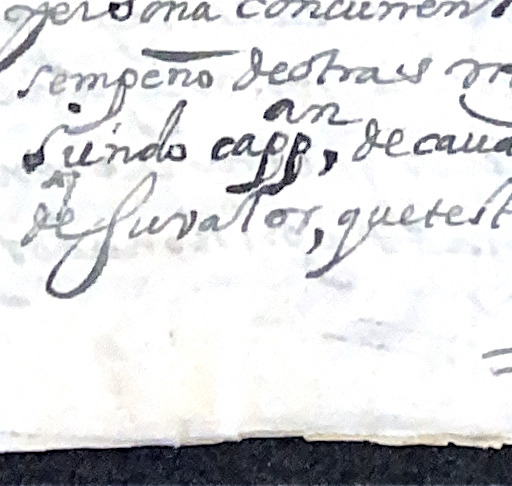 persona concurren
sempeño de otras
siendo capp.an, de caua
de su valor, que test